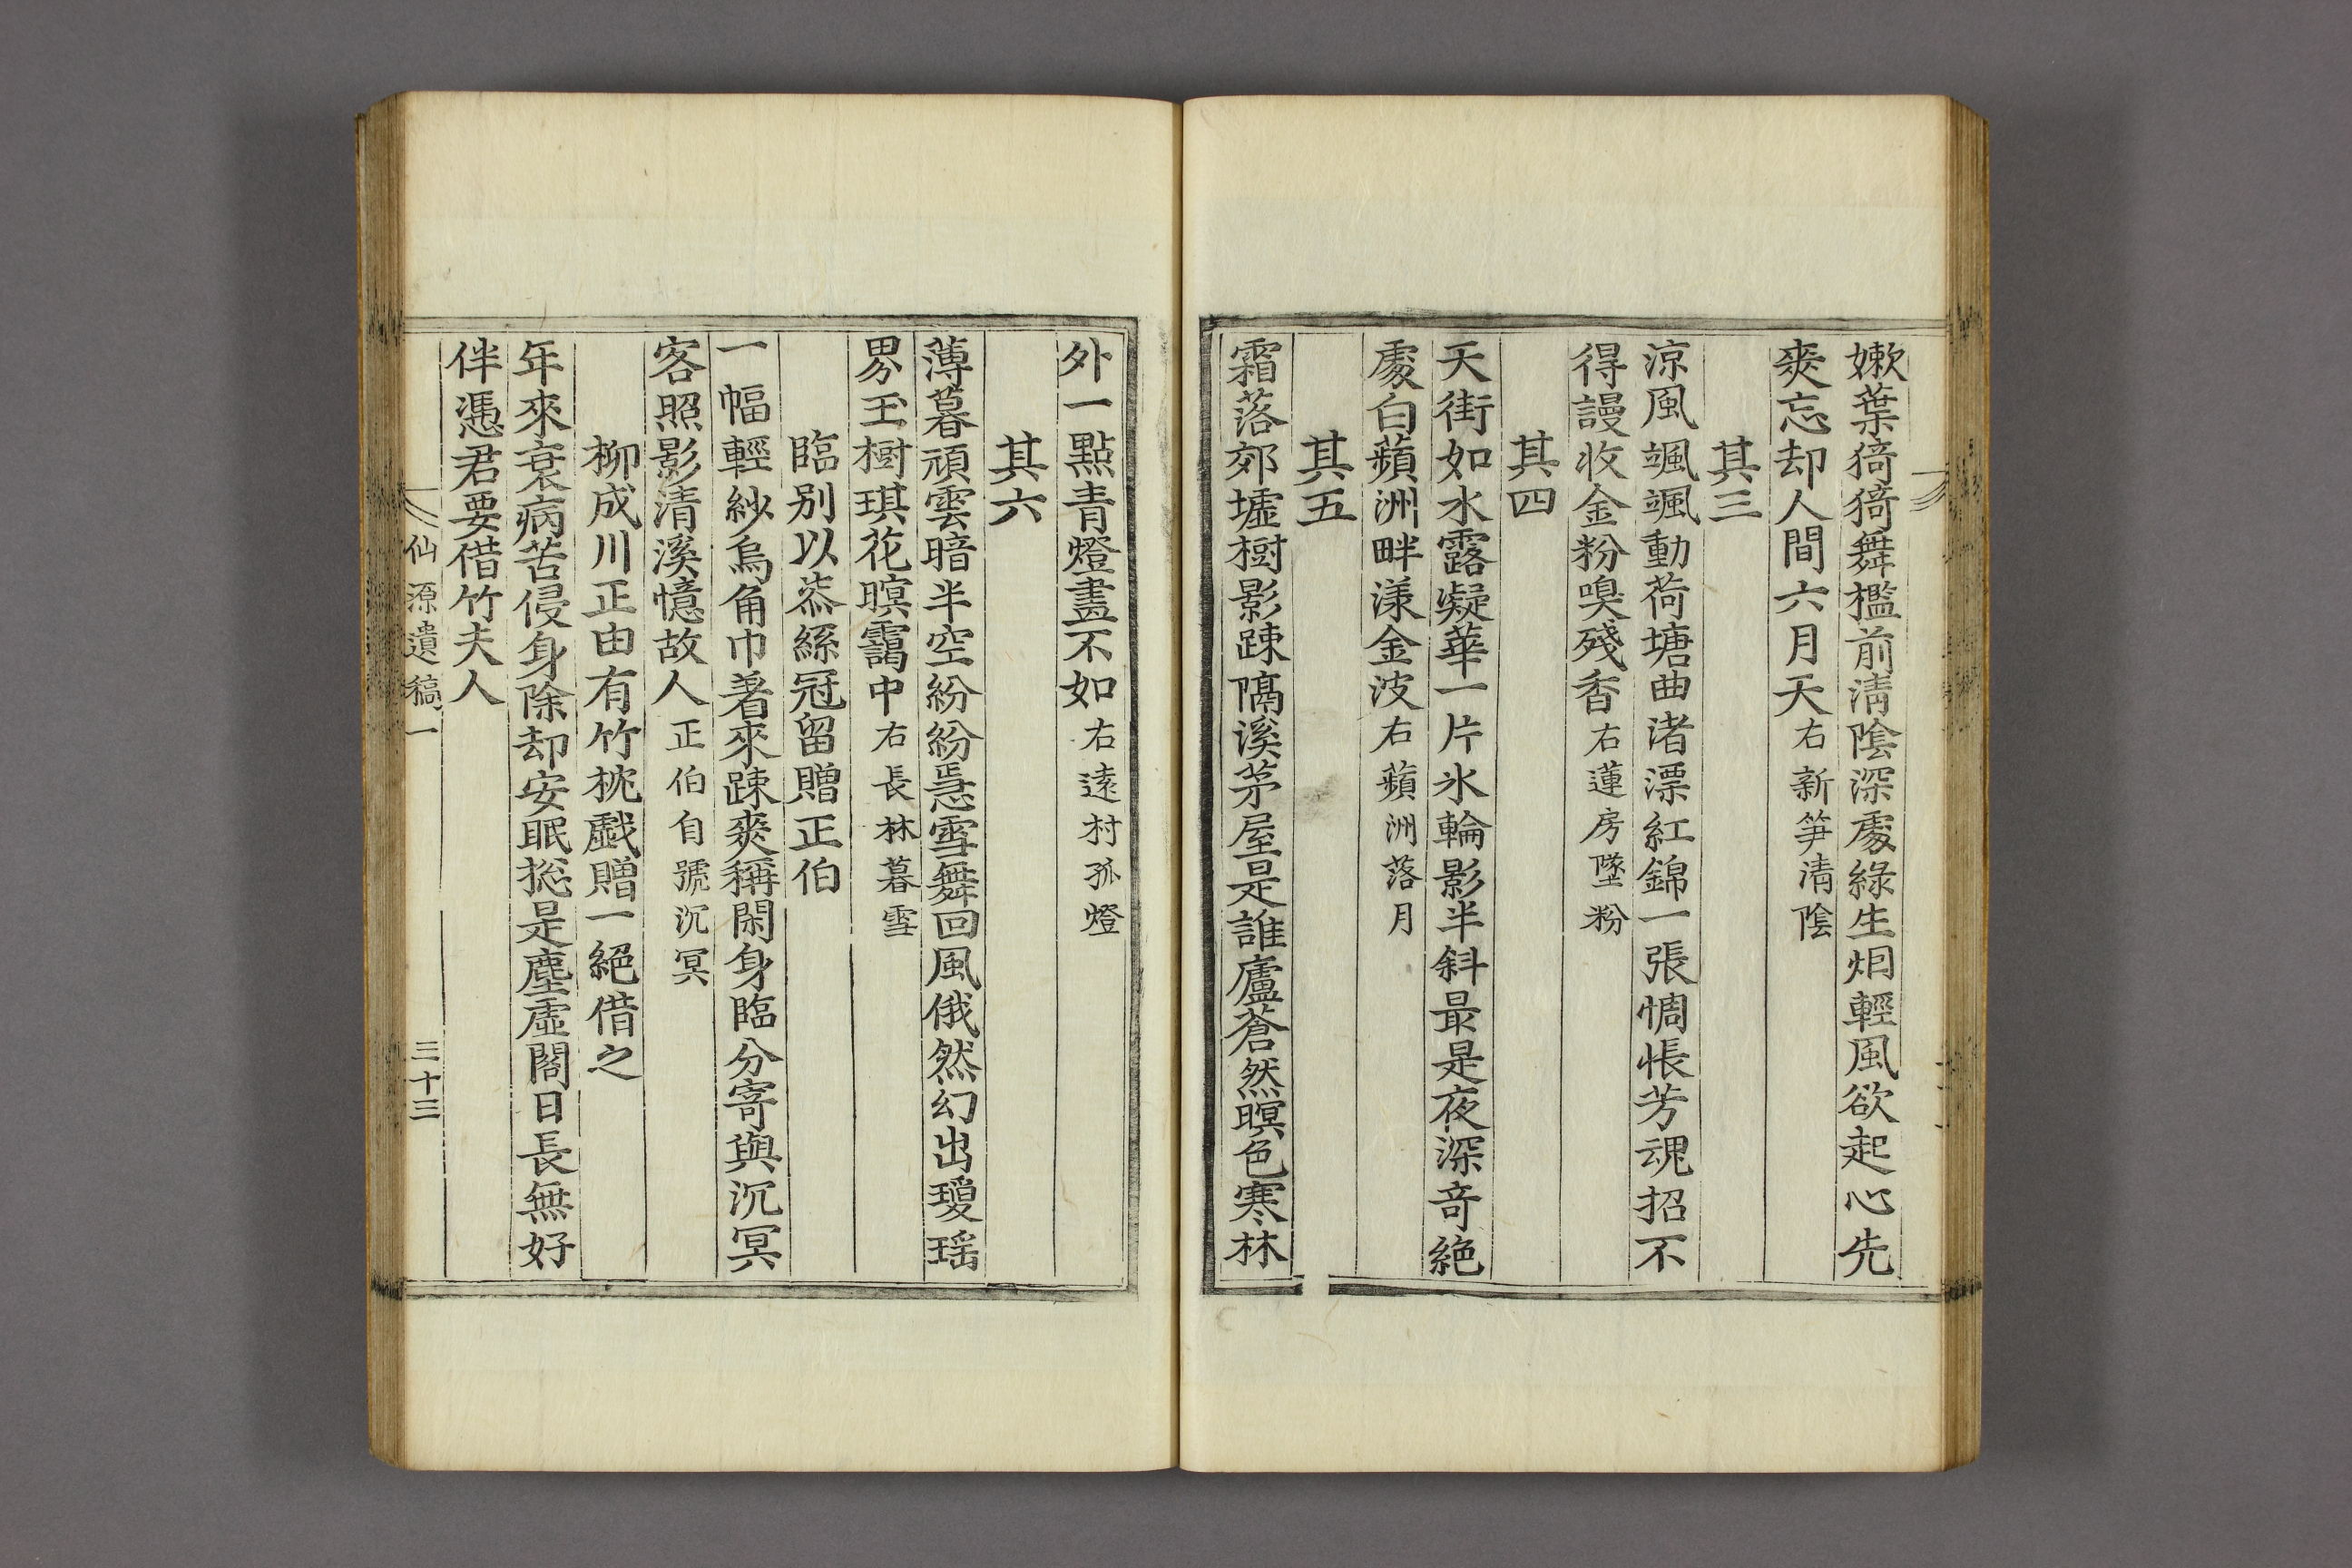 嫩葉猗猗舞檻前清陰深處綠生烟輕風欲起心先
爽忘却人間六月天右新笋清陰
其三
涼風颯颯動荷塘曲渚漂紅錦一張惆悵芳魂招不
得謾收金粉嗅殘香右蓮房墜粉
其四
天街如水露凝華一片氷輪影半斜最是夜深奇絶
處白蘋洲畔漾金波右蘋洲落月
其五
霜落郊墟樹影踈隔溪茅屋是誰廬蒼然暝色寒林
外一點青燈畫不如右遠村孤燈
其六
薄暮頑雲暗半空紛紛急雪舞回風俄然幻出瓊瑤
界玉樹琪花暝靄中右長林暮雪
臨别以菾絲冠留贈正伯
一幅輕紗烏角巾着來踈爽稱閑身臨分寄與沉冥
客照影清溪憶故人正伯自號沉冥
柳成川正由有竹枕戱贈一絕借之
年來衰病苦侵身除却安眠捴是塵虛閤日長無好
伴憑君要借竹夫人
仙源遺稿一
三十三